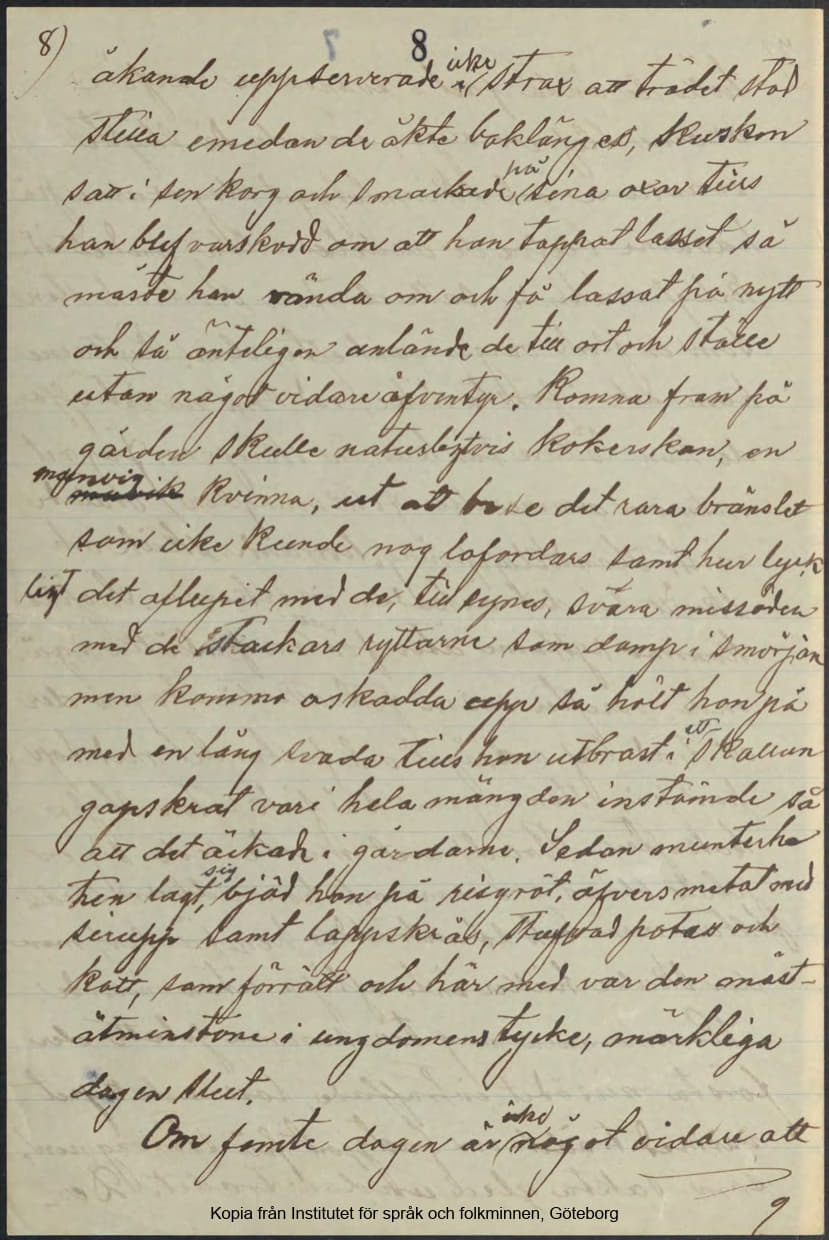 8) 8
åkande uppserverade icke strax att trädet stod
stilla emedan de åkte baklänges, kusken
satt i sen korg och smackade på sina oxar tills
han blef varskodd om att han tappat lasset så
måste han vända om och få lassat på nytt
och så äntligen anlände de till ort och ställe
utan något vidare äfventyr. Komna fram på
gården skulle naturligtvis kokerskan, en
manvig kvinna, ut att bese det rara bränslet
som icke kunde nog lofordars samt hur lyck
ligt det aflupit med de, till synes, svåra missöden
med de stackars ryttarne som damp i smörjan
men kommo oskadda upp så hölt hon på
med en lång svada tills hon utbrast i ett skallan
gapskrat vari hela mängden instämde så
att det äckade i gårdarne. Sedan munterhe
ten lagt sig, bjöd hon på risgröt, öfversmetat med
sirupp samt lappskrås, stufvad potatt och
kött, som förrätt och här med var den mäst-
åtminstone i ungdomens tycke, märkliga
dagen slut.
Om femte dagen är icke något vidare att
9
Kopia från Institutet för språk och folkminnen, Göteborg